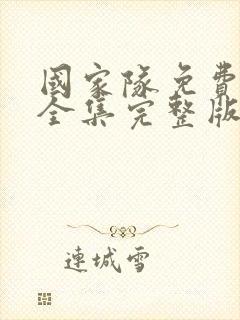 國家隊免費
全集完整版
連城雪